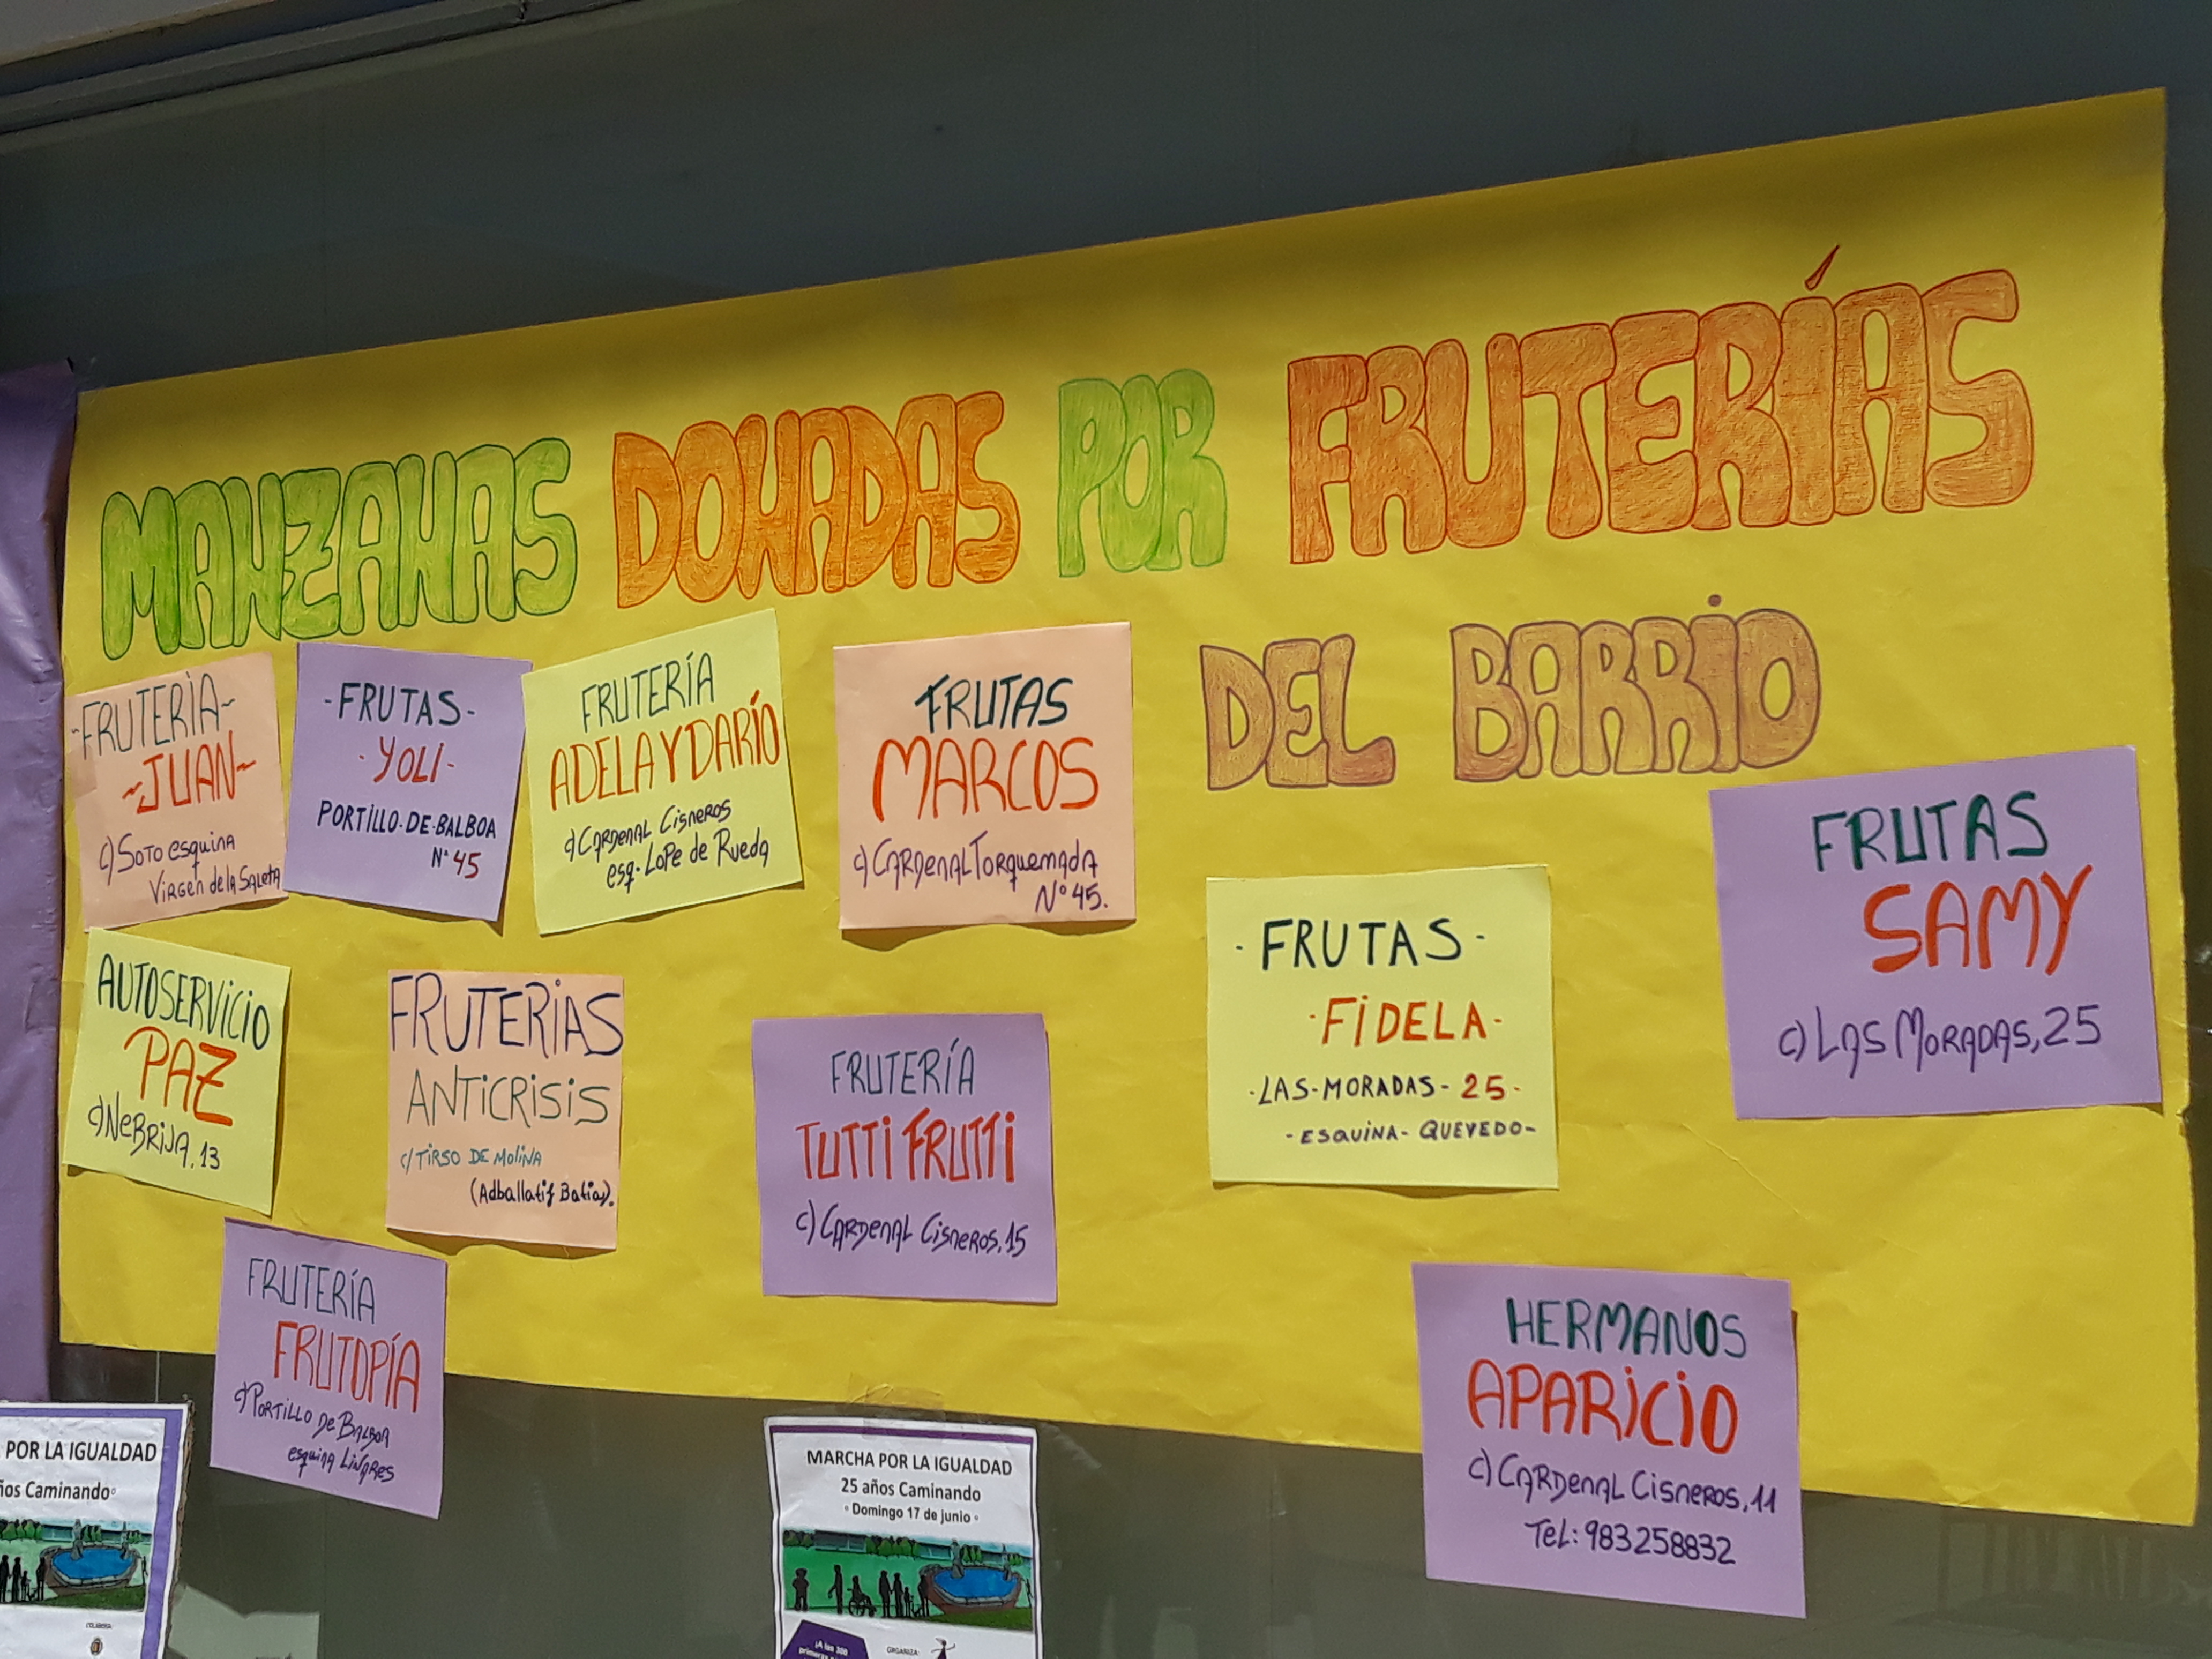 MANZANAS DONADAS POR FRUTERÍAS
DEL BARRIO
-FRUTERÌA-
-JUAN-
c) SOTO esquina
VIRGEN de la SALETA
-FRUTAS-
-YOLI-
PORTILLO-DE-BALBOA
Nº 45
FRUTERÍA
ADELA Y DARÍO
c) CARDENAL CISNEROS
esq. LoPe de Rueda
FRUTAS
MARCOS
c) CARDENAL Torquemada
Nº 45.
FRUTAS
SAMY
c) LAS MORADAS, 25
-FRUTAS-
-FIDELA-
-LAS-MORADAS-25-
-ESQUINA-QUEVEDO-
AUTOSERVICIO
PAZ
c) NeBRIJA, 13
FRUTERIAS
ANTICRISIS
c/ TIRSO DE MOLINA
(Adballatif Batias).
FRUTERÍA
TUTTI FRUTTI
c) CARDENAL CISNEROS, 15
FRUTERÍA
FRUTOPÍA
c) PORTILLO De BALBOA
esquina LINARES
HERMANOS
APARICIO
c) CARDENAL CISNEROS, 11
TeL: 983258832
POR LA IGUALDAD
ños Caminando
COLABORA:
MARCHA POR LA IGUALDAD
25 años Caminando
Domingo 17 de junio
¡A las 300
ORGANIZA: